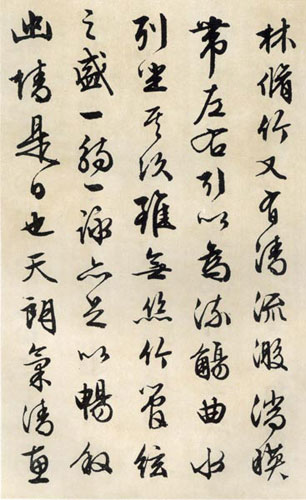 林脩竹又有清流激湍暎
帶左右引以為流觴曲水
列坐其次雖無絲竹管弦
之盛一觴一詠亦足以暢敘
幽情是日也天朗氣清惠